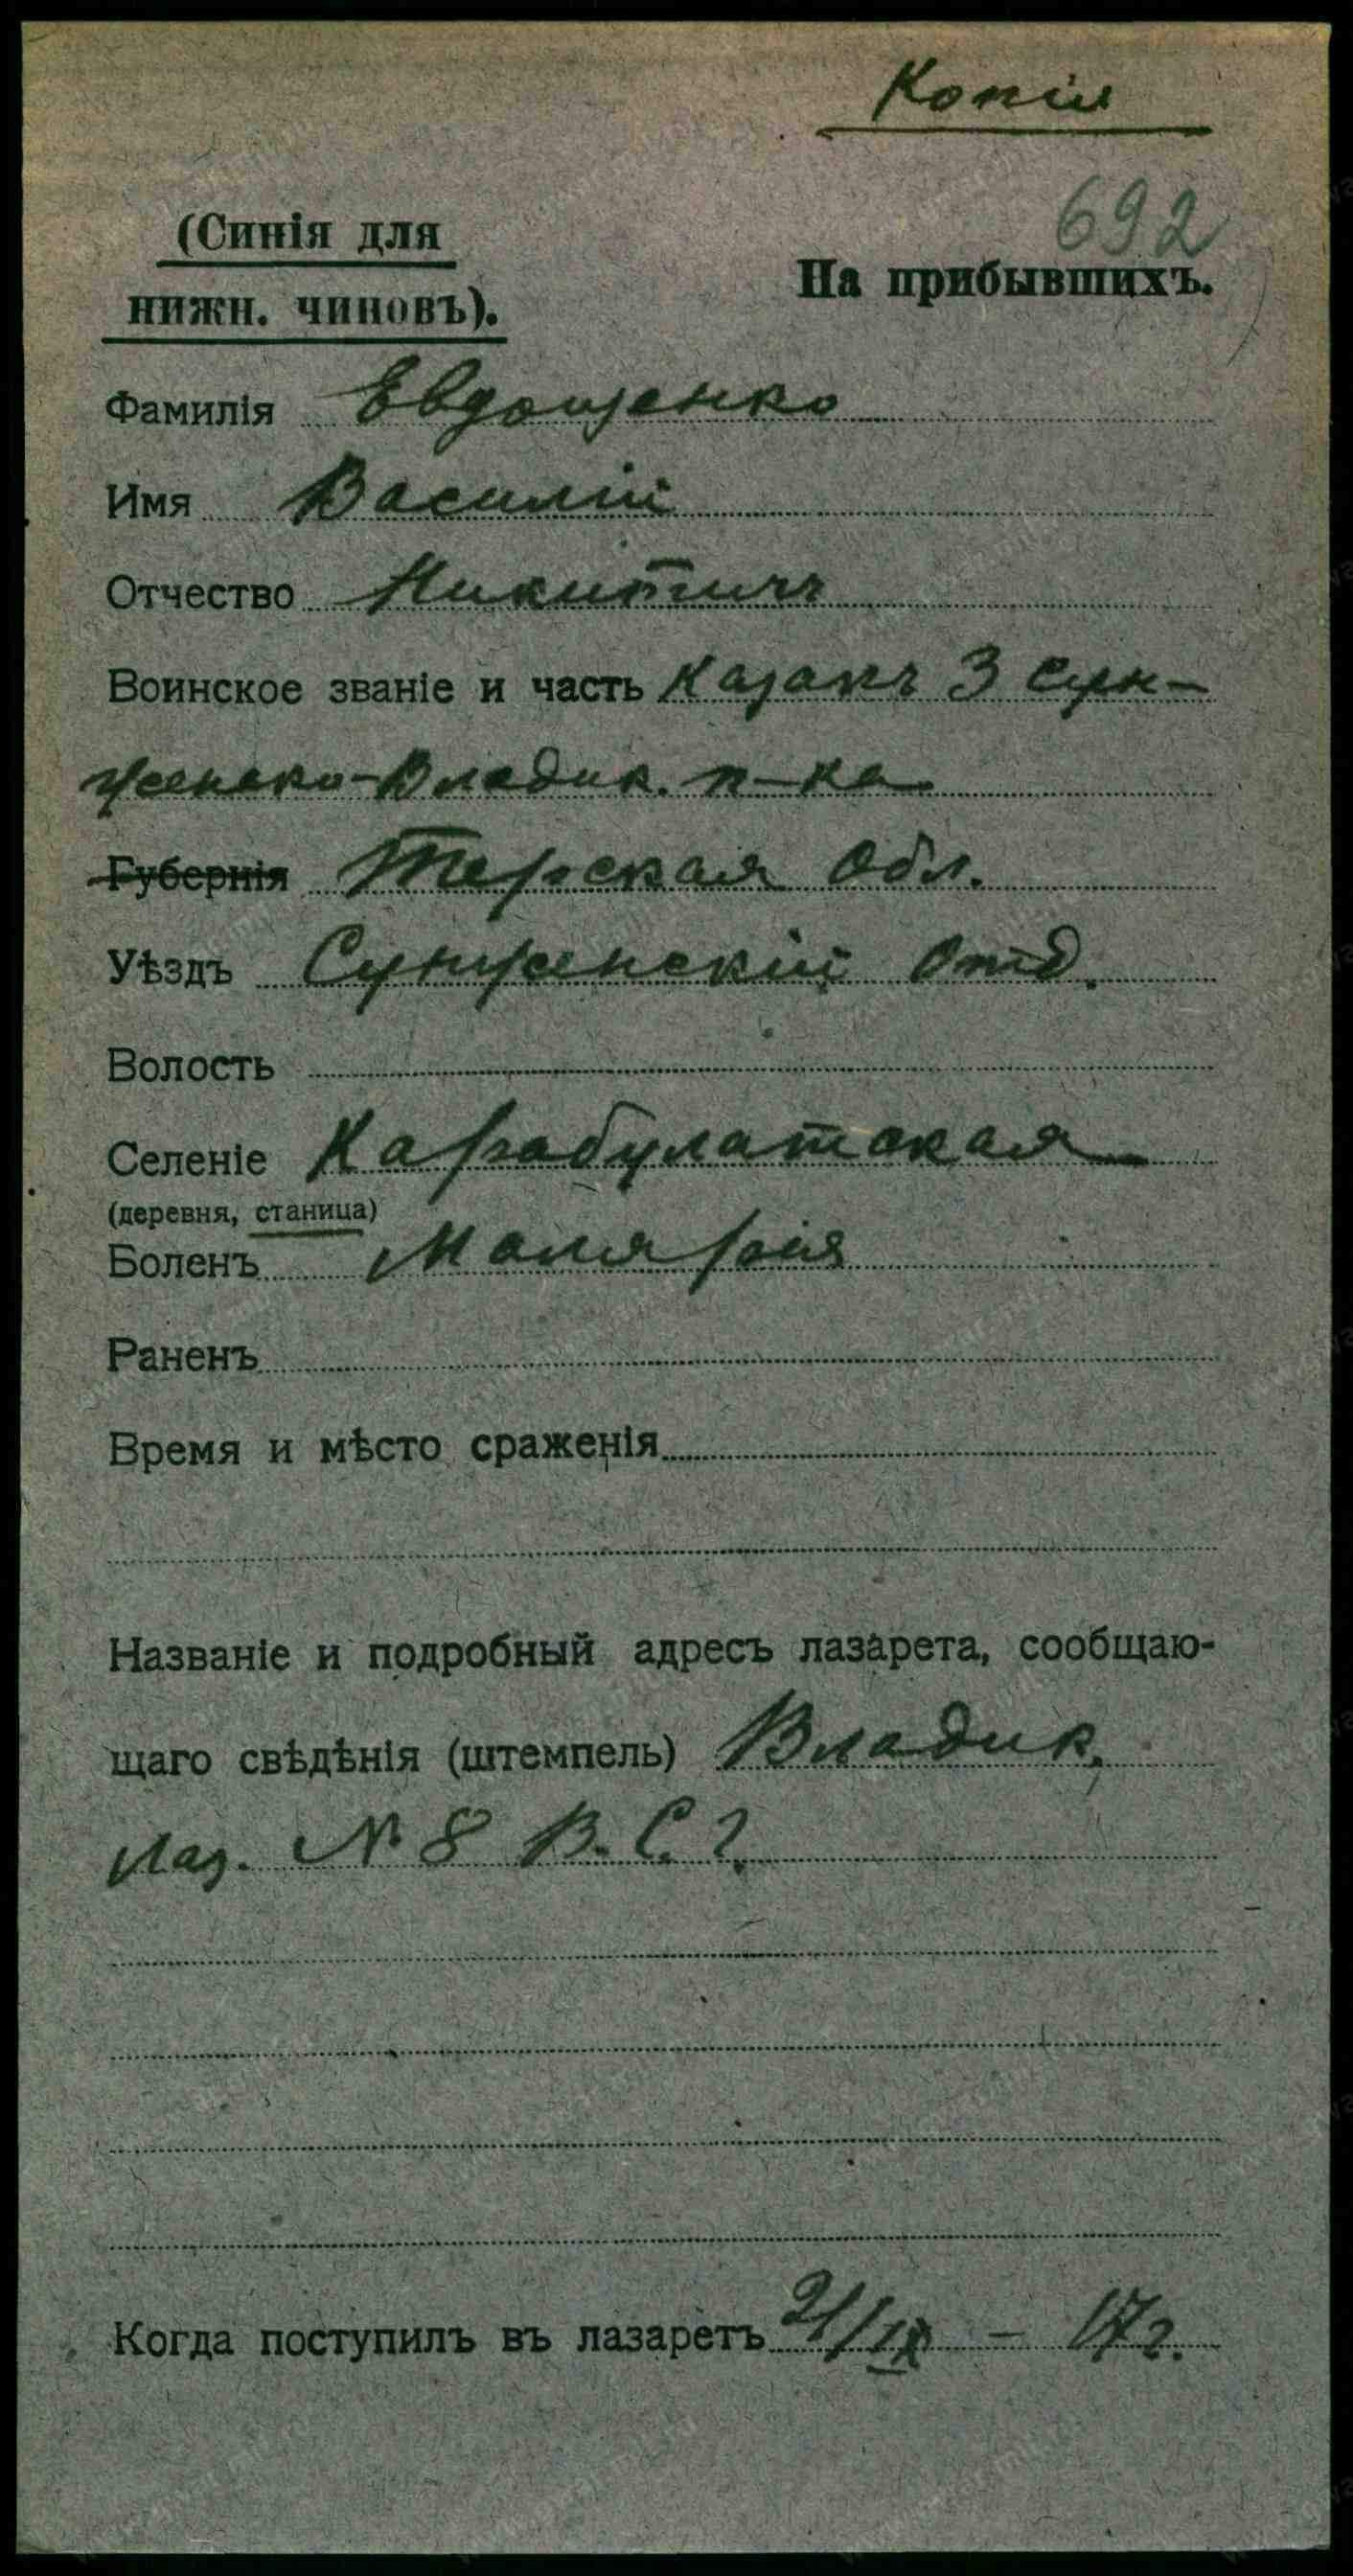 Копія
692
(Синія для
нижн. чиновъ).
На прибывшихъ.
Фамилія Евдощенко
Имя Василій
Отчество Никитичъ
Воинское званіе и часть Казакъ 3 Сун-
женско-Владик. п-ка
Губернія Терская Обл.
Уѣздъ Сунженскій Отд.
Волость
Селеніе Карабулатская
(деревня, станица)
Боленъ Малярія
Раненъ
Время и мѣсто сраженія
Названіе и подробный адресъ лазарета, сообщаю-
щаго свѣдѣнія (штемпель) Владик.
Лаз. № 8 В. С. Г.
Когда поступилъ въ лазаретъ 21/IX – 17 г.